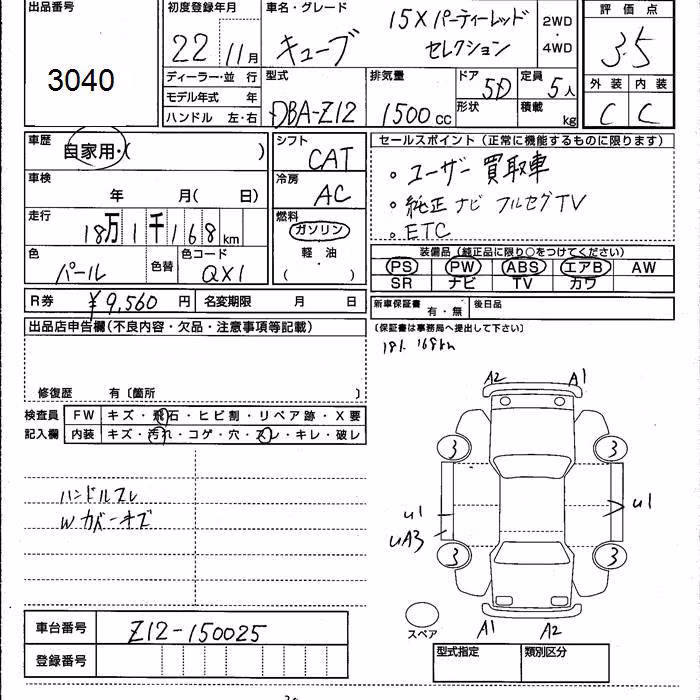 出品番号 初度登録年月 車名・グレード 評価点
3040 22 11月 キューブ 15X パーティーレッド セレクション 2WD ・ 4WD 3.5
ディーラー・並行 型式 排気量 ドア 5D 定員 5人 外装 内装
モデル年式 年 DBA-Z12 1500cc 形状 積載 kg C C
ハンドル 左・右
車歴 自家用・( ) シフト CAT セールスポイント(正常に機能するものに限ります)
車検 年 月( 日) 冷房 AC 。ユーザー買取車
走行 18万1千168km 燃料 ガソリン 。純正ナビ フルセグTV
軽油 ( ・ ) 。ETC
色 パール 色替 色コード QX1 装備品(純正品に限り○をつけてください)
PS PW ABS エアB AW
SR ナビ TV カワ
R券 ¥9,560円 名変期限 月 日 新車保証書 有・無 後日品
出品店申告欄(不良内容・欠品・注意事項等記載) (保証書は事務局へ提出して下さい)
181.168km
修復歴 有〔箇所 〕
検査員 FW キズ・飛石・ヒビ割・リペア跡・X要
記入欄 内装 キズ・汚れ・コゲ・穴・スレ・キレ・破レ
A2 A1
3 3
ハンドルスレ
Wカバーキズ
U1 U1
UA3
3 3
スペア A1 A2
車台番号 Z12-150025
登録番号
型式指定 類別区分